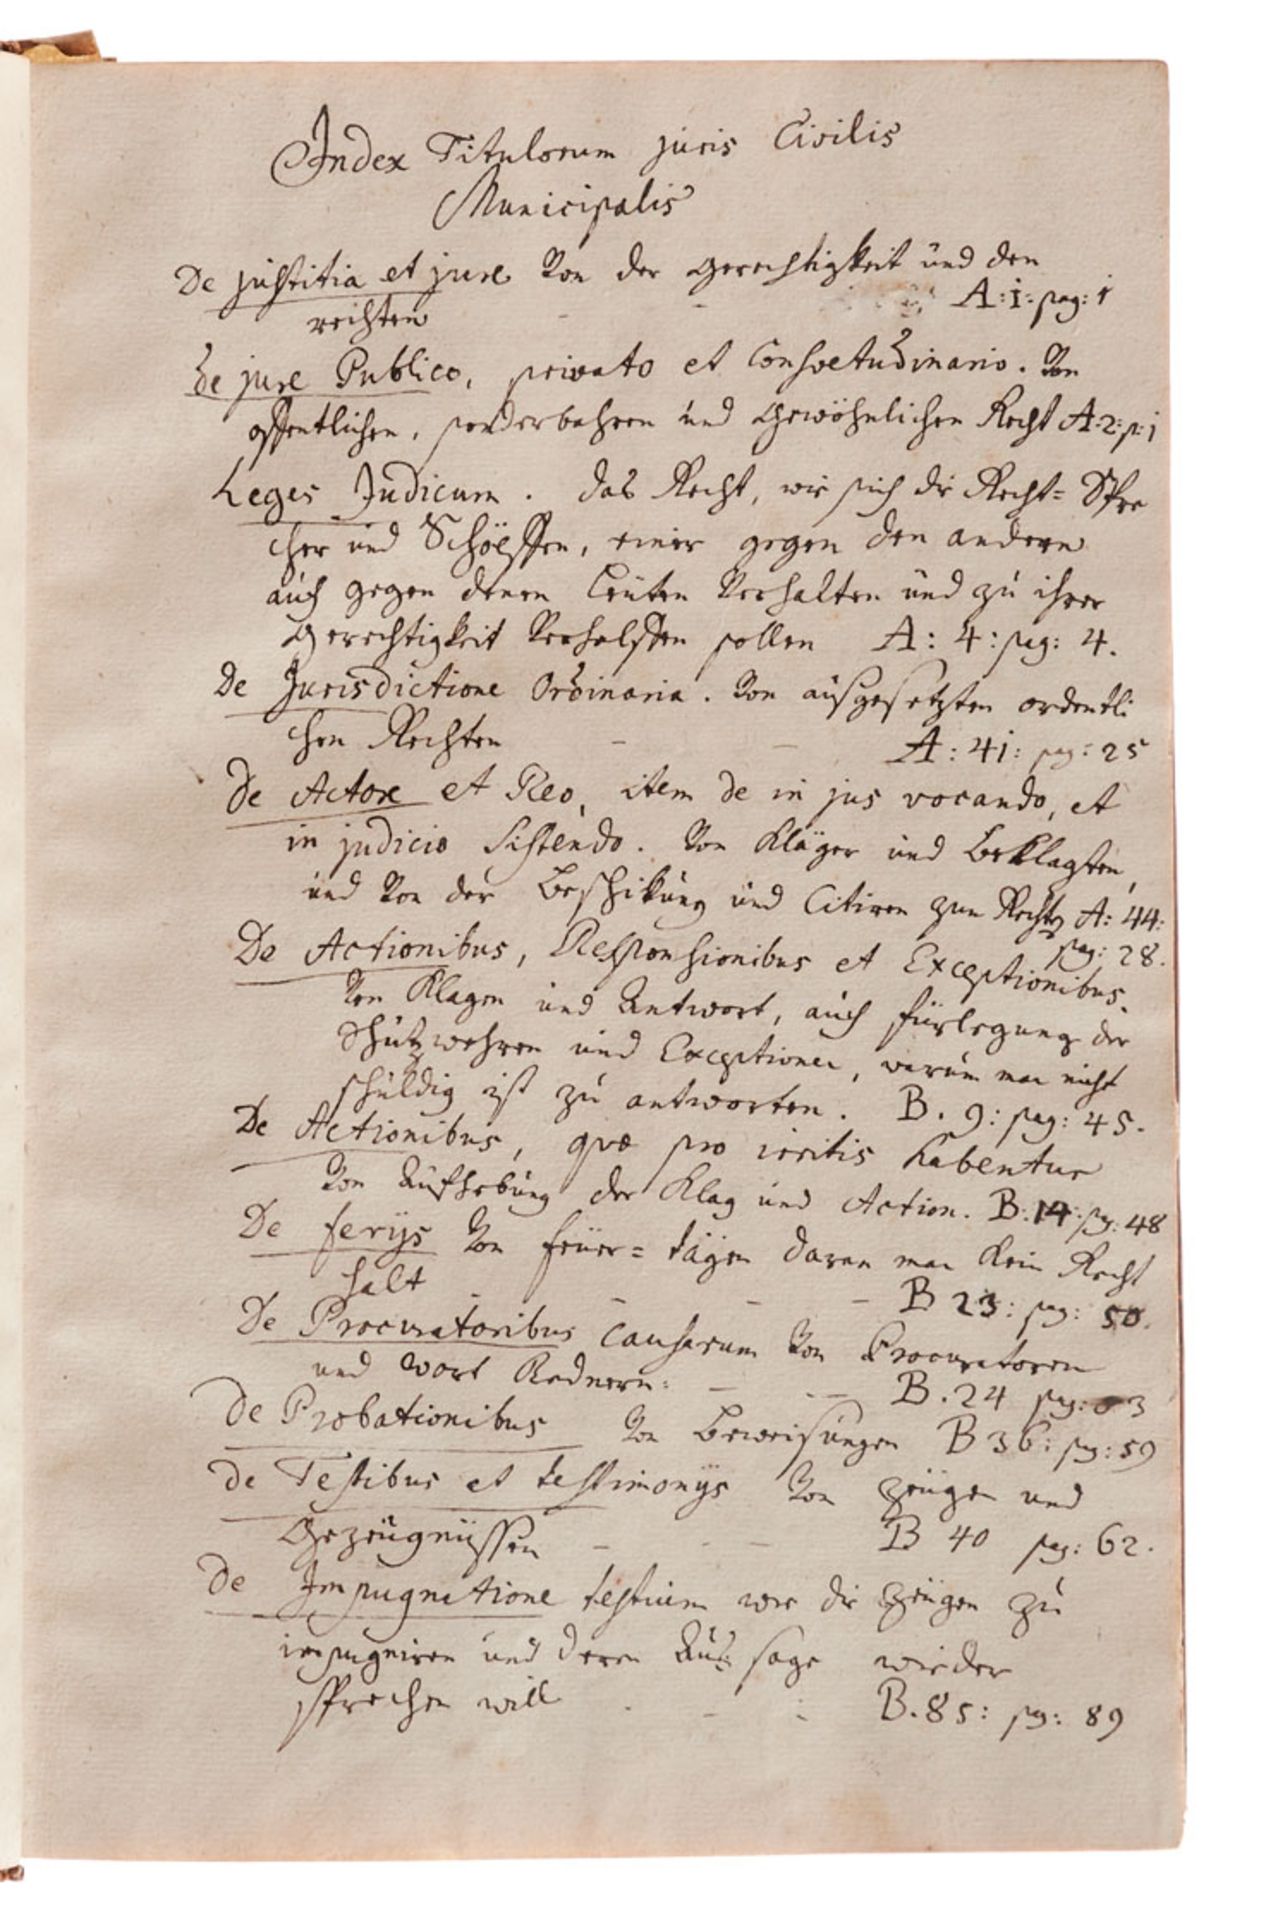 Index Titulorum juris Civilis
Municipalis
De justitia et jure Von der Gerechtigkeit und den
rechten - - A: 1: pag: 1
De jure Publico, privato et Consvetudinario. Von
offentlichen, sonderbahren und Gewöhnlichen Recht A: 2: p: 1
Leges Judicum. Das Recht, wie sich die Recht= Spre
cher und Schöeffen, einer gegen den andern
auch gegen denen Leuten Verhalten und zu ihrer
Gerechtigkeit Verhelffen sollen A: 4: pag: 4.
De Jurisdictione Ordinaria. Von aufgesetzten ordentli
chen Rechten - - A: 41: pag: 25
De Actore et Reo, item de in jus vocando, et
in judicio Sistendo. Von Kläger und Beklagten,
und Von der Beschikung und Citiren zum Rechten A: 44:
pag: 28.
De Actionibus, Responsionibus et Exceptionibus.
Von Klagen und Antwort, auch fürlegung der
Schutzwehren und Exceptionen, warum man nicht
schuldig ist zu antworten. B. 9: pag: 45.
De Actionibus, quæ pro irritis habentur
Von Aufhebung der Klag und Action. B: 14: pg: 48
De ferijs Von feüer= tägen daran man kein Recht
halt - - - - B 23: pag: 50.
De Procuratoribus Causarum Von Procuratoren
und Wort Rednern: - - B. 24 pag: 53
De Probationibus Von Beweisungen B 36: pag: 59
De Testibus et testimonijs Von Zeügen und
Gezeügnüssen - - - B 40 pag: 62.
De Impugnatione testium wer die Zeügen zu
impugniren und deren Aus sage wieder
sprechen will - - - B. 85: pg: 89